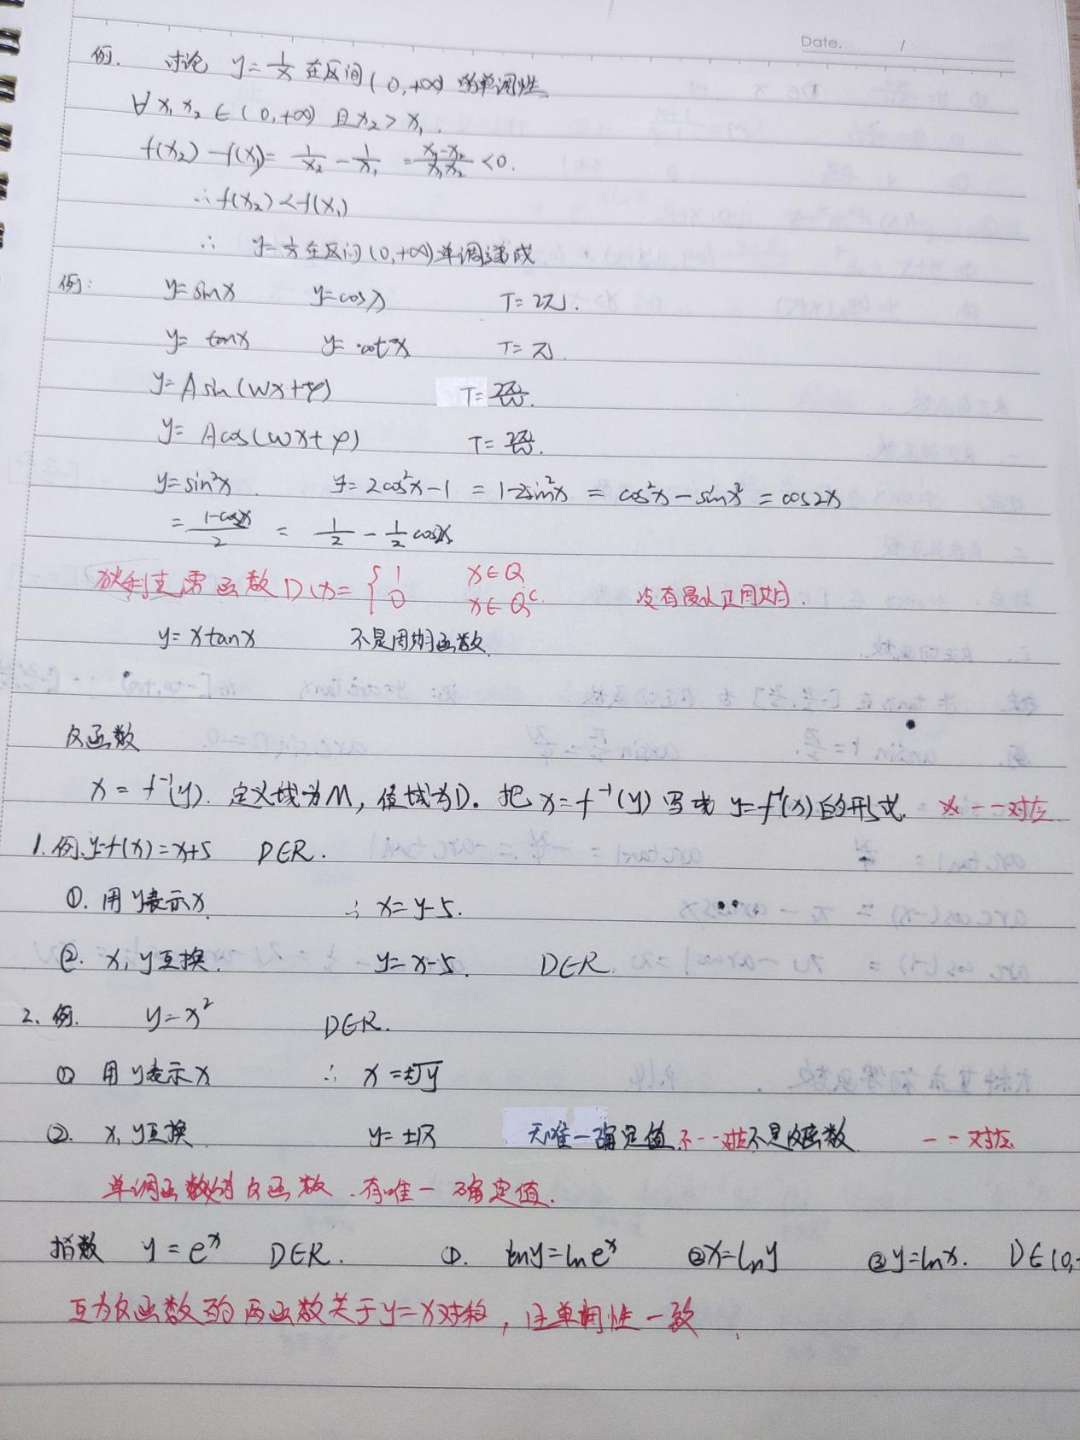 Date. /
例. 讨论 y=1/x 在区间(0,+∞)的单调性
∀x₁x₂∈(0,+∞) 且x₂>x₁.
f(x₂)-f(x₁)= 1/x₂ - 1/x₁ = (x₁-x₂)/(x₁x₂) <0.
∴f(x₂)<f(x₁)
∴ y=1/x在区间(0,+∞)单调递减
例: y=sinx y=cosx T=2π.
y= tanx y=cotx T=π.
y=Asin(wx+φ) T=2π/w.
y= Acos(wx+φ) T=2π/w.
y=sin²x y=2cos²x-1 =1-2sin²x = cos²x-sin²x =cos2x
= (1-cos2x)/2 = 1/2 - 1/2 cos2x
狄利克雷函数D(x)={ 1 x∈Q
0 x∈Qᶜ. 没有最小正周期.
y=xtanx 不是周期函数
反函数
x=f⁻¹(y). 定义域为M,值域为D。把x=f⁻¹(y)写成y=f⁻¹(x)的形式. 一一对应
1.例.y=f(x)=x+5 D∈R.
①.用y表示x ∴x=y-5.
②. x,y互换. y=x-5. D∈R.
2.例. y=x² D∈R.
① 用y表示x ∴ x=±√y
②. x,y互换 y=±√x 无唯一确定值.不一一对应不是反函数 一一对应
单调函数的反函数.有唯一确定值.
指数 y=eˣ D∈R. ①. lny=lneˣ ②x=lny ③y=lnx. D∈(0,
互为反函数的两函数关于y=x对称,且单调性一致.